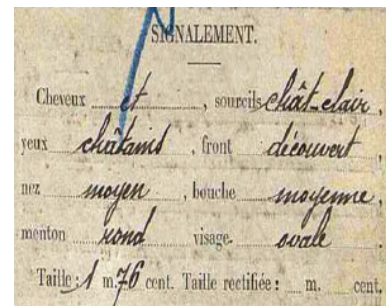 SIGNALEMENT.
Cheveux et, sourcils chât-clair,
yeux châtains, front découvert,
nez moyen, bouche moyenne,
menton rond visage ovale.
Taille: 1 m. 76 cent. Taille rectifiée: m. cent.